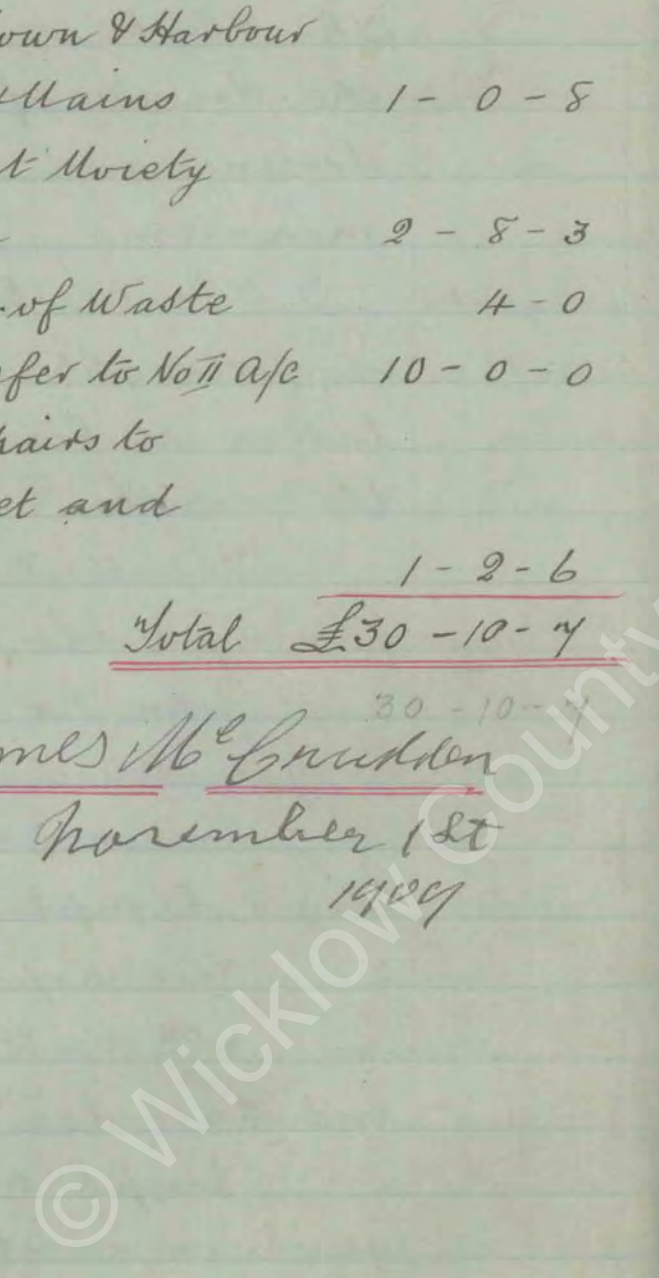 own & Harbour
Mains 1 - 0 - 8
t Moiety
2 - 8 - 3
of Waste 4 - 0
fer to No II a/c 10 - 0 - 0
pairs to
et and
1 - 2 - 6
Total £30 - 10 - 7
30 - 10 - 7
mes McCrudden
November 1st
1909
© Wicklow County